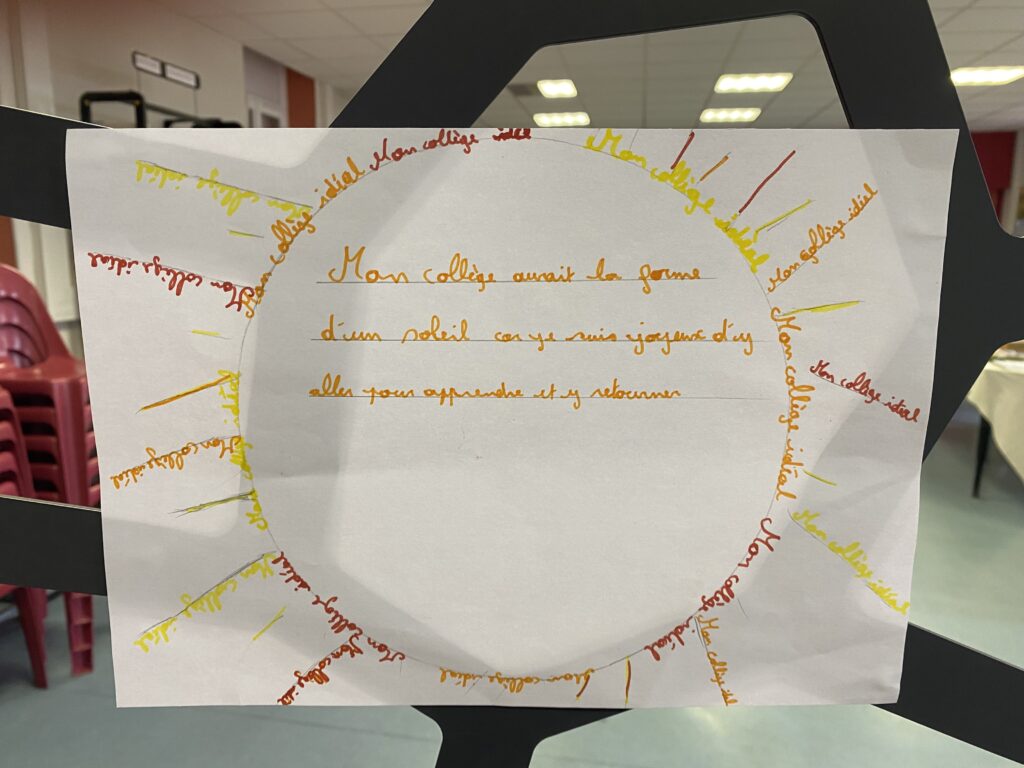 Mon collège aurait la forme
d'un soleil car je suis joyeux d'y
aller pour apprendre et y retourner
Mon collège idéal
Mon collège
Mon collège idéal
Mon collège idéal
Mon collège idéal
Mon collège idéal
Mon collège idéal
Mon collège idéal
Mon collège idéal
Mon collège
Mon collège idéal
Mon collège
Mon collège idéal
Mon collège idéal
Mon collège idéal
Mon collège idéal
Mon collège idéal